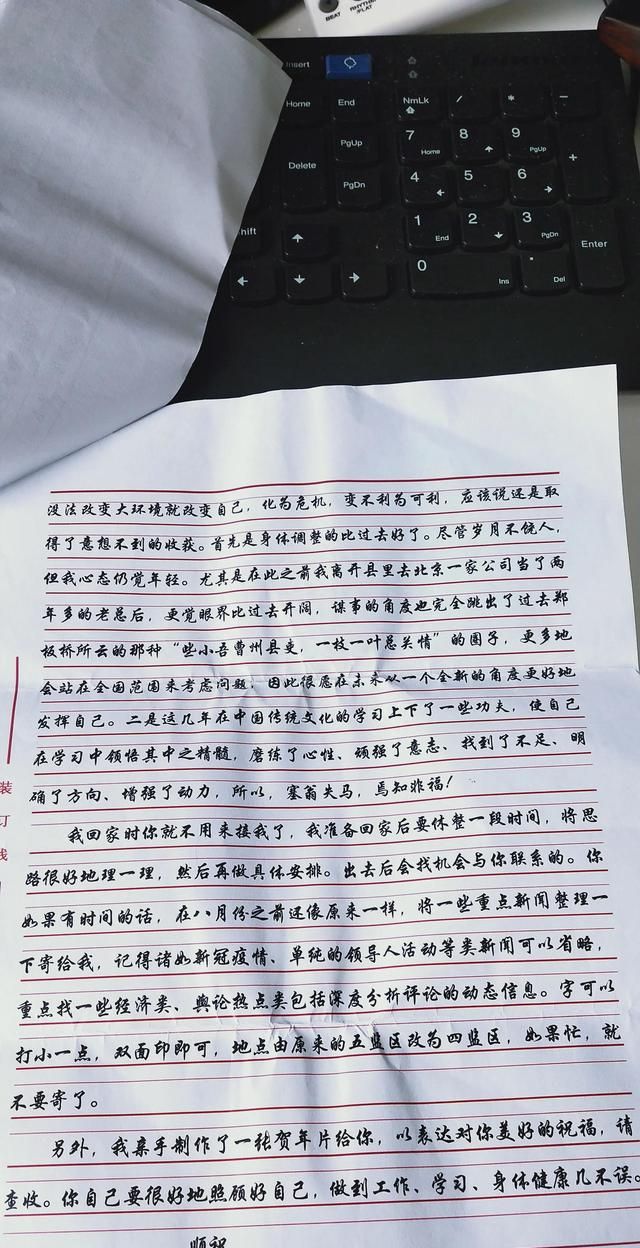 BEAT
RHYTHM
/PLAT
Insert
Home
End
NmLk
/
*
-
Delete
PgUp
PgDn
7 Home
8
9 PgUp
+
4
5
6
Shift
1 End
2
3 PgDn
Enter
0 Ins
. Del
没法改变大环境就改变自己，化为危机，变不利为可利，应该说还是取
得了意想不到的收获。首先是身体调整的比过去好了。尽管岁月不饶人，
但我心态仍觉年轻。尤其是在此之前我离开县里去北京一家公司当了两
年多的老总后，更觉眼界比过去开阔，谋事的角度也完全跳出了过去郑
板桥所云的那种“些小吾曹州县吏，一枝一叶总关情”的圈子，更多地
会站在全国范围来考虑问题，因此很愿在未来从一个全新的角度更好地
发挥自己。二是这几年在中国传统文化的学习上下了一些功夫，使自己
在学习中领悟其中之精髓，磨练了心性、顽强了意志、找到了不足、明
确了方向、增强了动力，所以，塞翁失马，焉知非福！
我回家时你就不用来接我了，我准备回家后要休整一段时间，将思
路很好地理一理，然后再做具体安排。出去后会找机会与你联系的。你
如果有时间的话，在八月份之前还像原来一样，将一些重点新闻整理一
下寄给我，记得诸如新冠疫情、单纯的领导人活动等类新闻可以省略，
重点找一些经济类、舆论热点类包括深度分析评论的动态信息。字可以
打小一点，双面印即可，地点由原来的五监区改为四监区，如果忙，就
不要寄了。
另外，我亲手制作了一张贺年片给你，以表达对你美好的祝福，请
查收。你自己要很好地照顾好自己，做到工作、学习、身体健康几不误。
顺祝
装
订
线